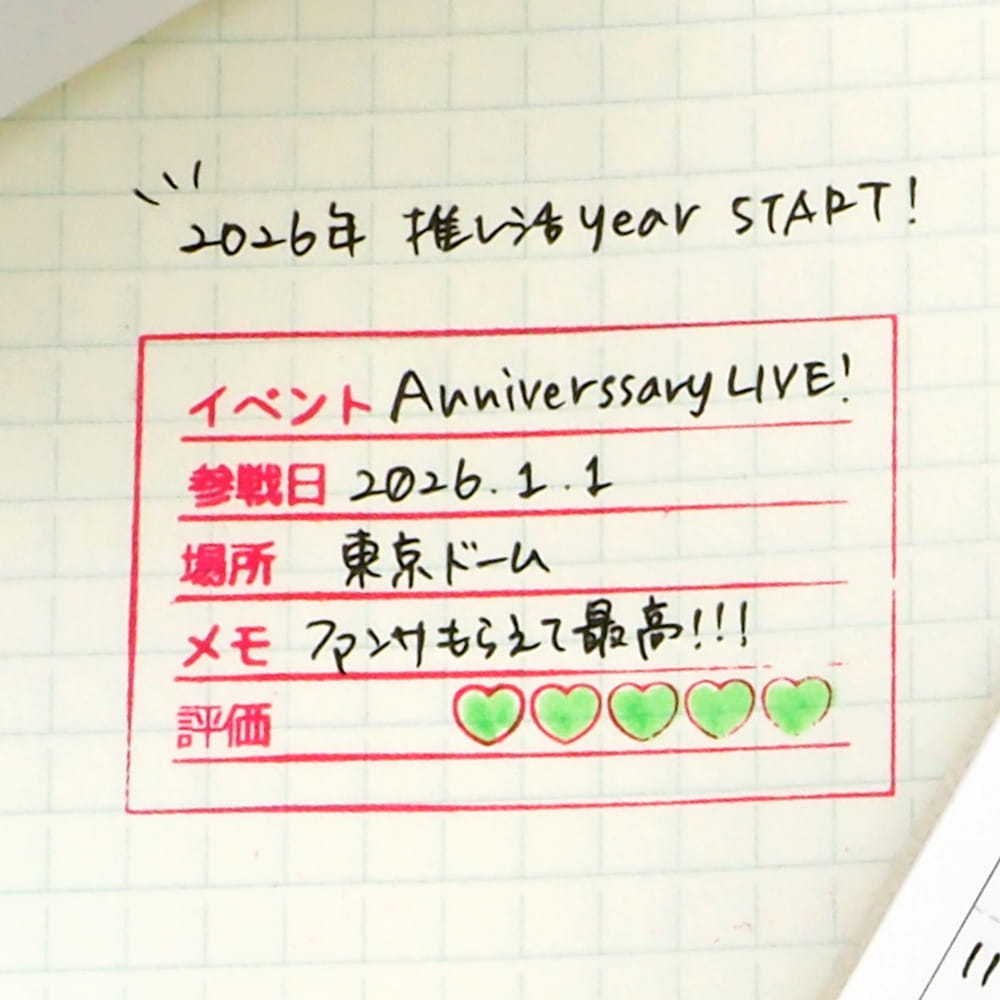 2026年 推し活year START!
イベント Anniverssary LIVE!
参戦日 2026.1.1
場所 東京ドーム
メモ ファンサもらえて最高!!!
評価